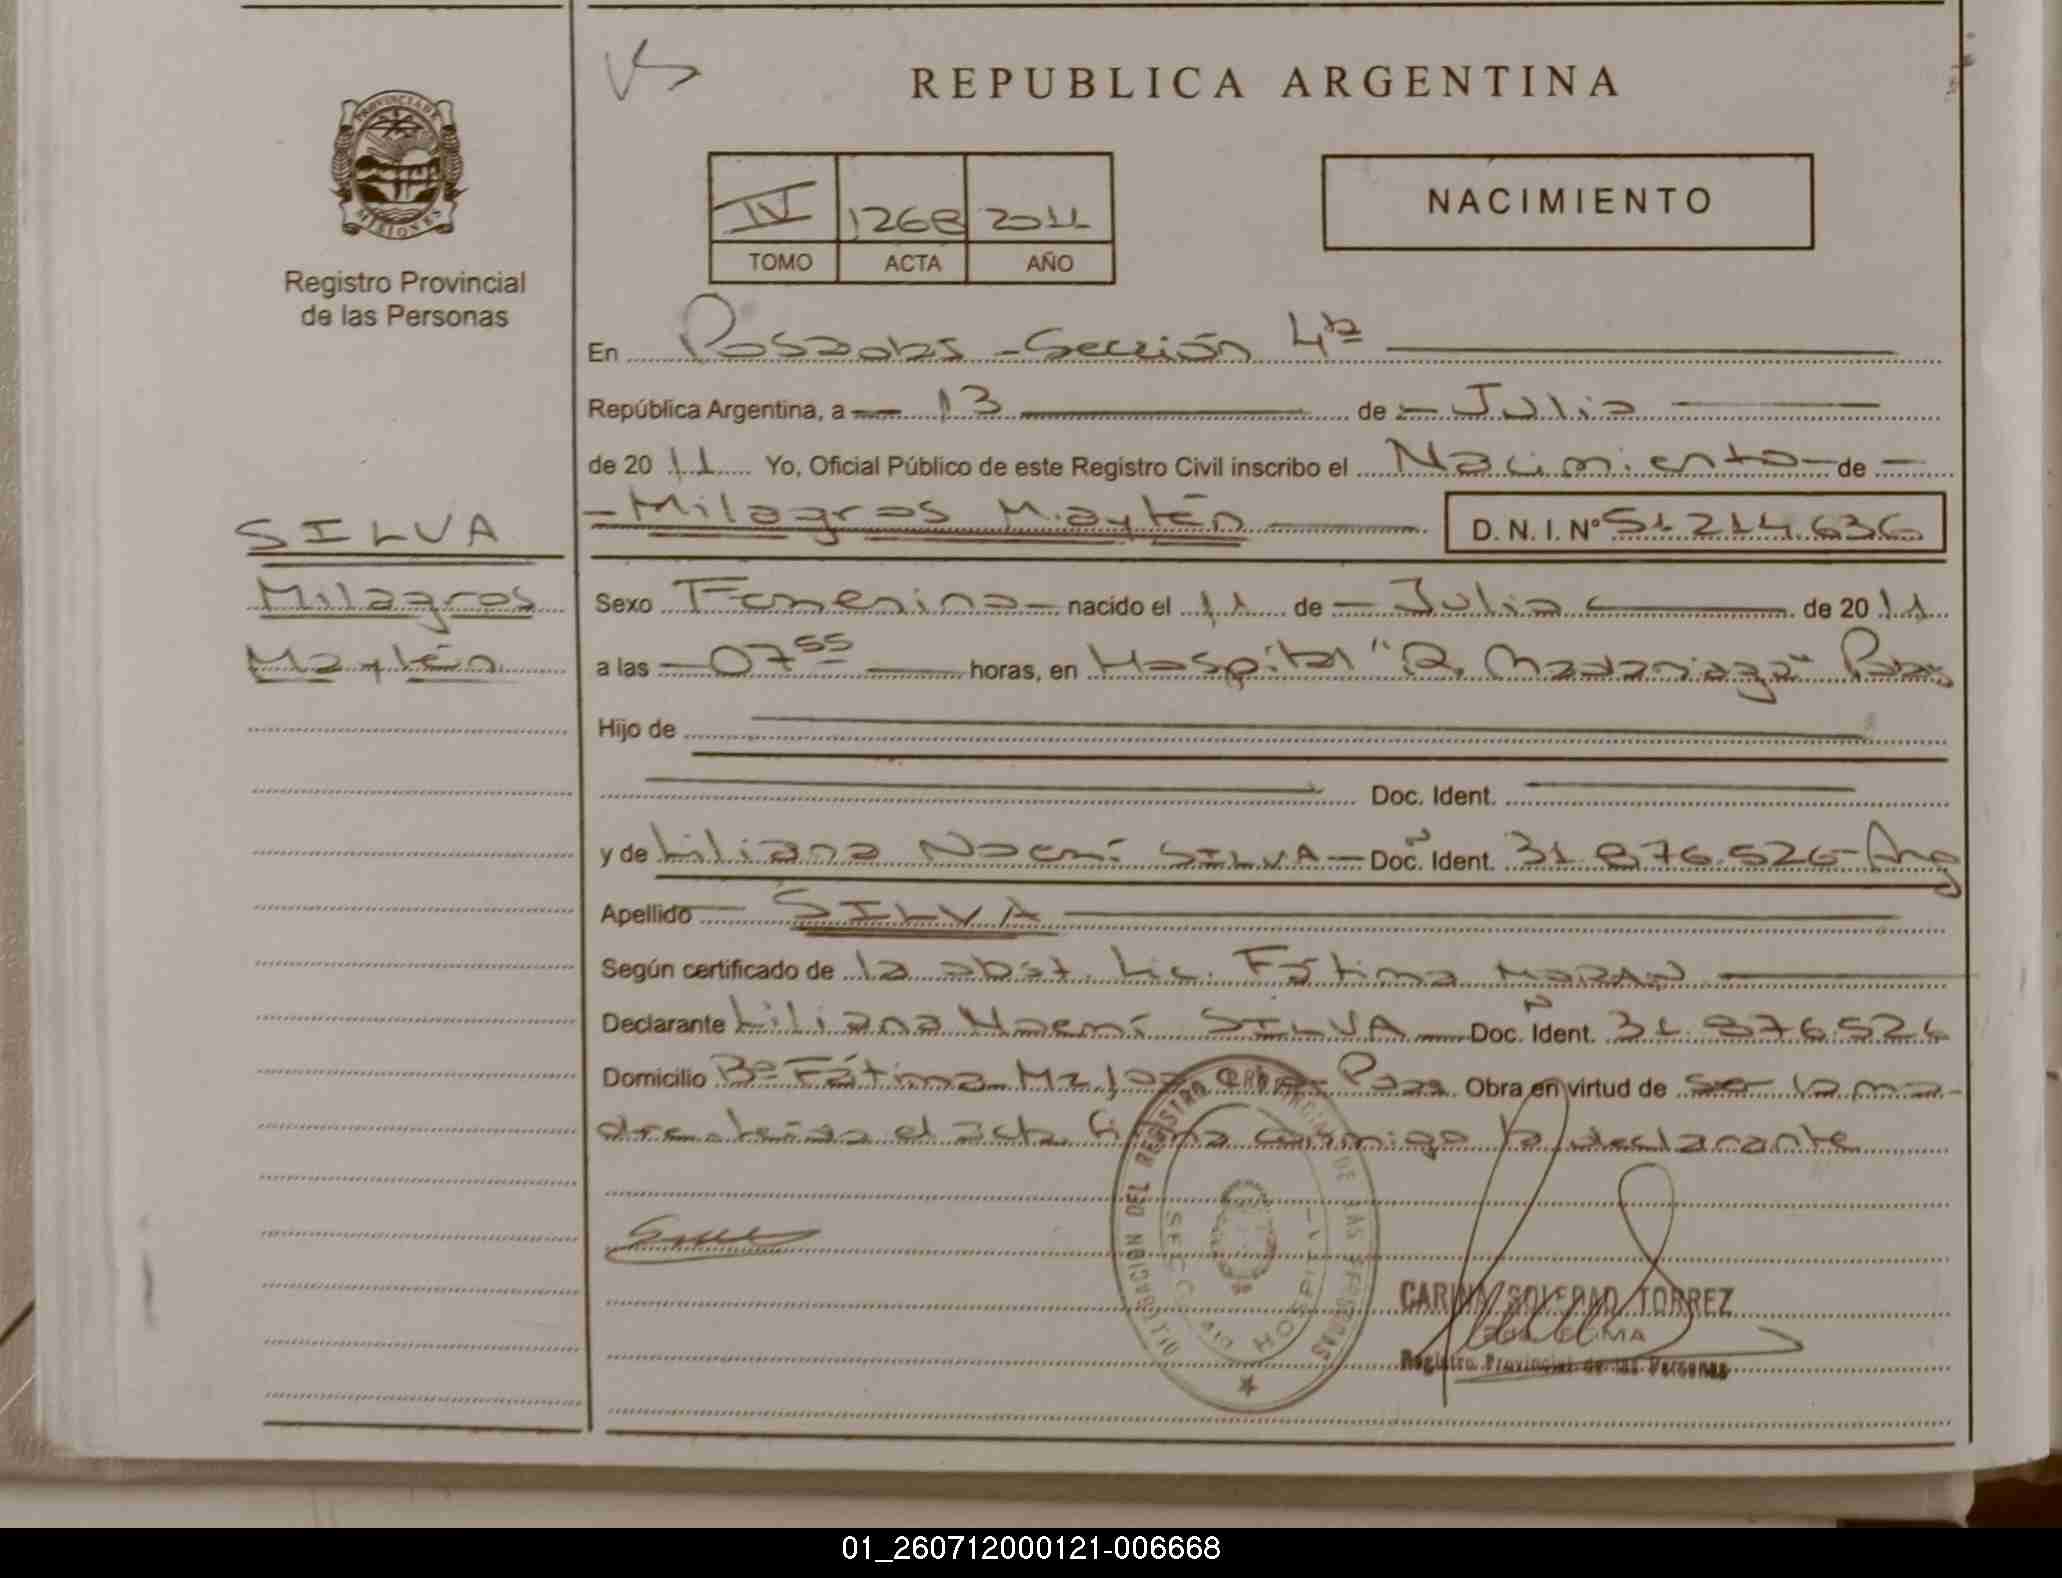 REPUBLICA ARGENTINA
PROVINCIA DE
MISIONES
Registro Provincial
de las Personas
IV 1268 2011
TOMO ACTA AÑO
NACIMIENTO
En Posadas - Sección 4ta
República Argentina, a 13 de Julio
de 2011 Yo, Oficial Público de este Registro Civil inscribo el Nacimiento de
Milagros Maytén D.N.I. Nº 51.214.636
SILVA
Milagros
Maytén
Sexo Femenino nacido el 11 de Julio de 2011
a las 07 55 horas, en Hospital "R. Madariaga" Pdas
Hijo de
Doc. Ident.
y de Liliana Noemí SILVA Doc. Ident. 31.876.526 - Arg
Apellido SILVA
Según certificado de la obst. Lic. Fátima MORAN
Declarante Liliana Noemí SILVA Doc. Ident. 31.876.526
Domicilio Bº Fátima Pdas. Obra en virtud de ser la ma-
dre leída el acta firma conmigo la declarante
DELEGACION DEL REGISTRO PROVINCIAL DE LAS PERSONAS
HOSPITAL
CARINA SOLEDAD TORREZ
Registro Provincial de las Personas
01_260712000121-006668